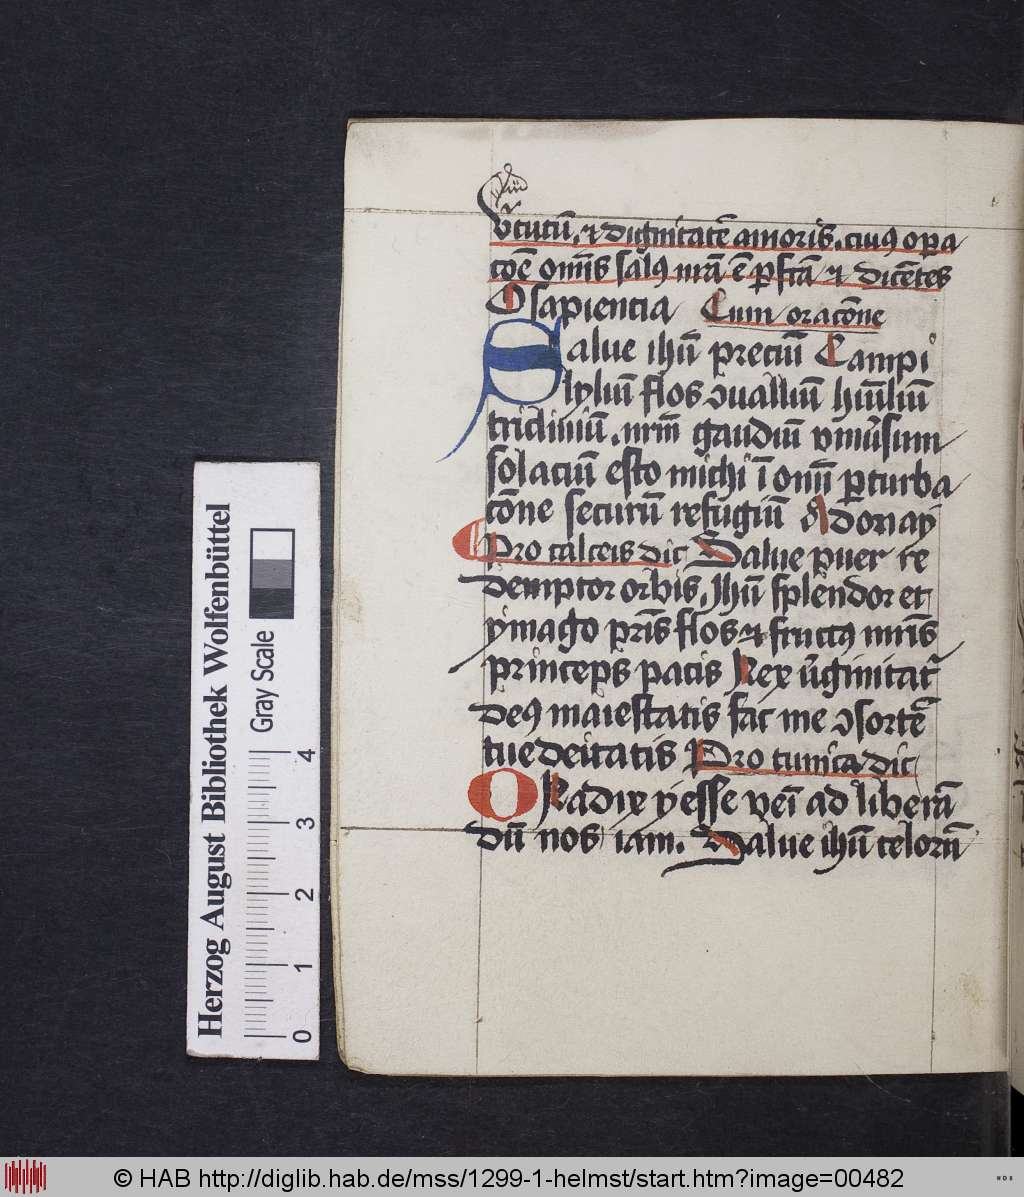 v̄tutū. ⁊ dignitatē amoris. cuiꝰ opa
cōe om̄s salꝰ nr̄a ē ꝑfc̄a ⁊ dicētes
O sapiencia Cum oracōne
Salue ihū preciū Campi
lyliū flos ꝯualliū hūiliū
tricliniū. nr̄m gaudiū vniūsum
solaciū esto michi ī omī ꝑturba
cōne securū refugiū Adonay
Pro calceis dic Salue puer re
demptor orbis. Jhū splendor et
ymago pr̄is flos ⁊ fructꝰ mr̄is
princeps pacis Rex v̄ginitat̄
deꝰ maiestatis fac me ꝯsortē
tue deitatis Pro tunica dic
O Radix yesse veī ad liberā
dū nos iam. Salue ihū celorū
Herzog August Bibliothek Wolfenbüttel
Gray Scale
0 1 2 3 4
© HAB http://diglib.hab.de/mss/1299-1-helmst/start.htm?image=00482